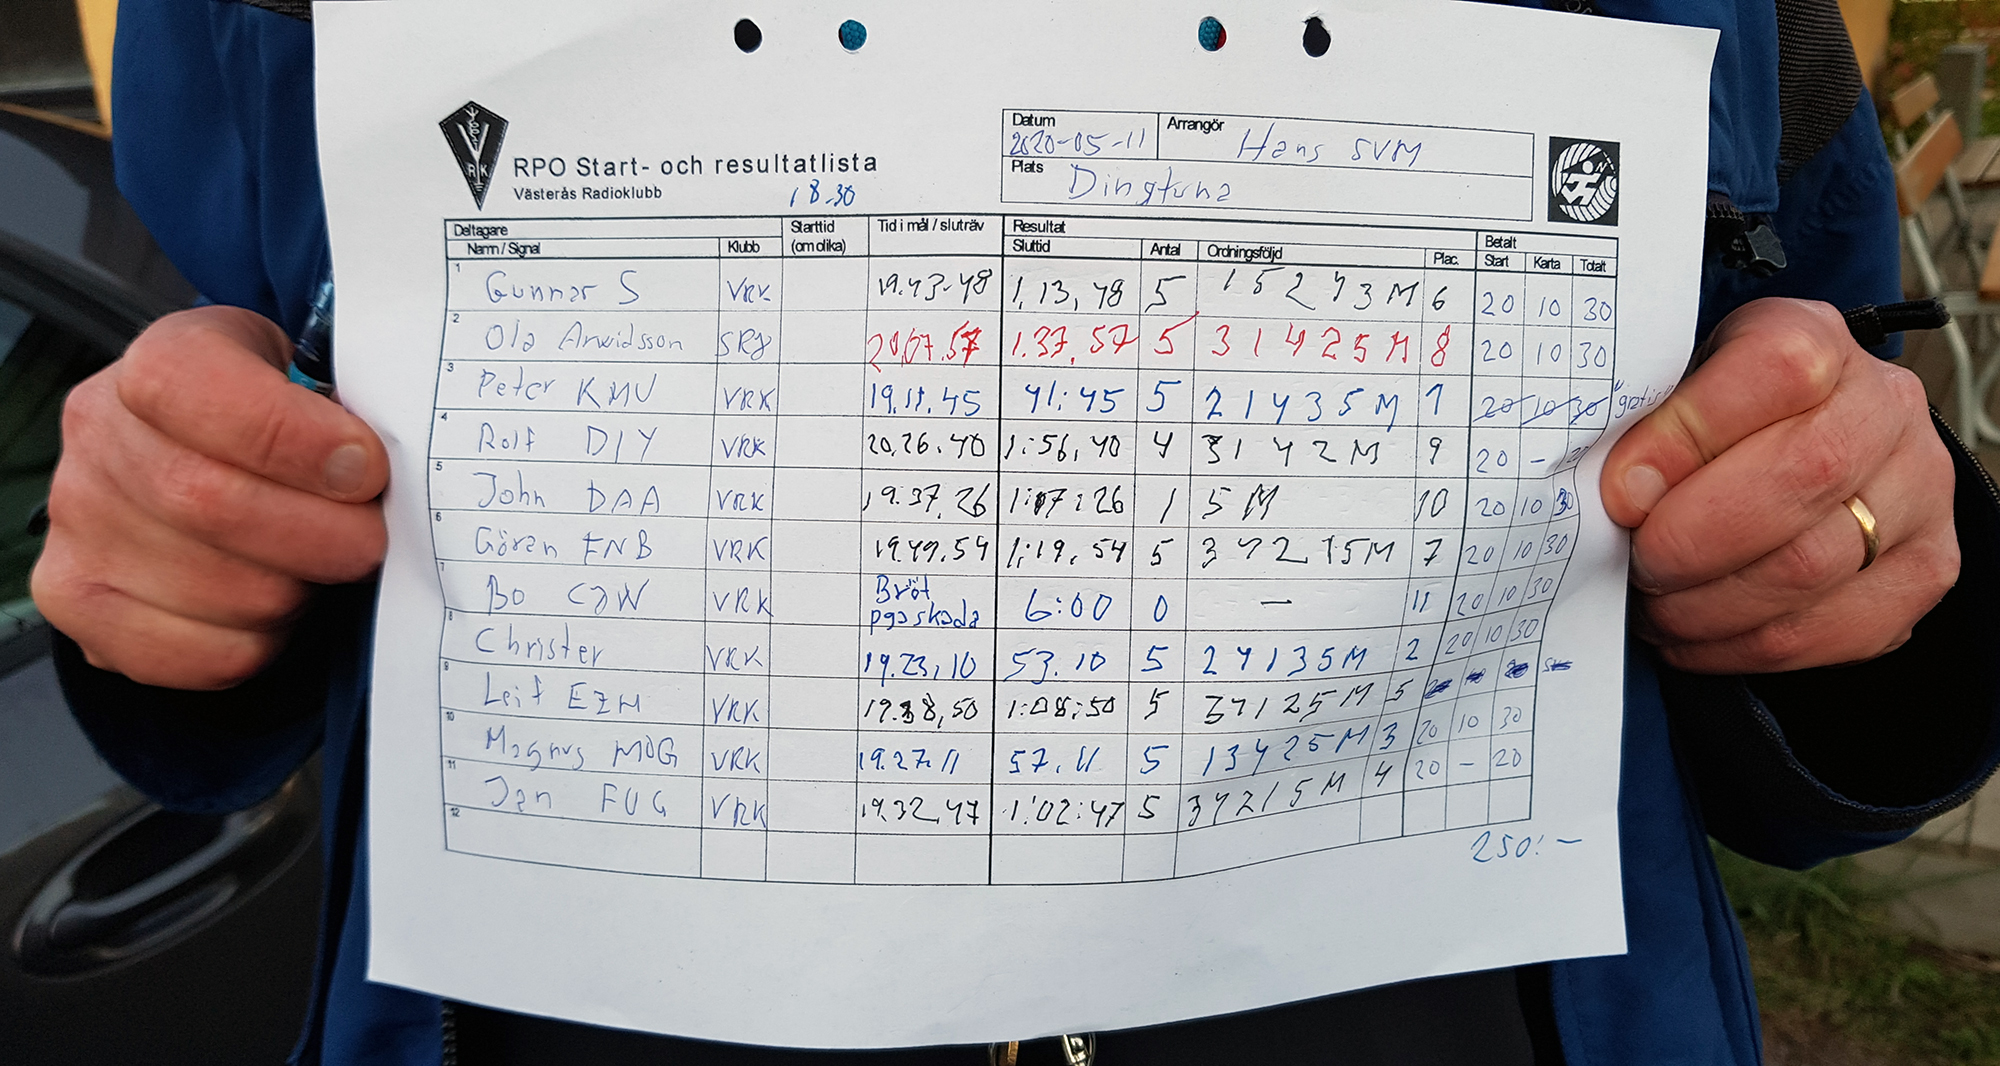 Datum
2020-05-11
Arrangör
Hans SVM
Plats
Dingtuna
V
R K
RPO Start- och resultatlista
Västerås Radioklubb
18.30
Deltagare
Namn / Signal Klubb Starttid (om olika) Tid i mål / sluträv Resultat Sluttid Antal Ordningsföljd Plac. Betalt Start Karta Totalt
1 Gunnar S VRK 19.43.48 1.13,48 5 15243M 6 20 10 30
2 Ola Arwidsson SRJ 20.07.57 1.37.57 5 31425M 8 20 10 30
3 Peter KMU VRK 19.11.45 41:45 5 21435M 1 20 10 30 "gratis"
4 Rolf DIY VRK 20.26.40 1:56.40 4 3142M 9 20 - 20
5 John DAA VRK 19.37.26 1:07:26 1 5M 10 20 10 30
6 Göran FNB VRK 19.49.54 1:19.54 5 34215M 7 20 10 30
7 Bo CJW VRK Bröt pga skada 6:00 0 — 11 20 10 30
8 Christer VRK 19.23.10 53.10 5 24135M 2 20 10 30
9 Leif EZM VRK 19.38,50 1:08:50 5 34125M 5
10 Magnus MOG VRK 19.27.11 57.11 5 13425M 3 20 10 30
11 Jan FUG VRK 19.32.47 1:02:47 5 34215M 4 20 - 20
12
250:-